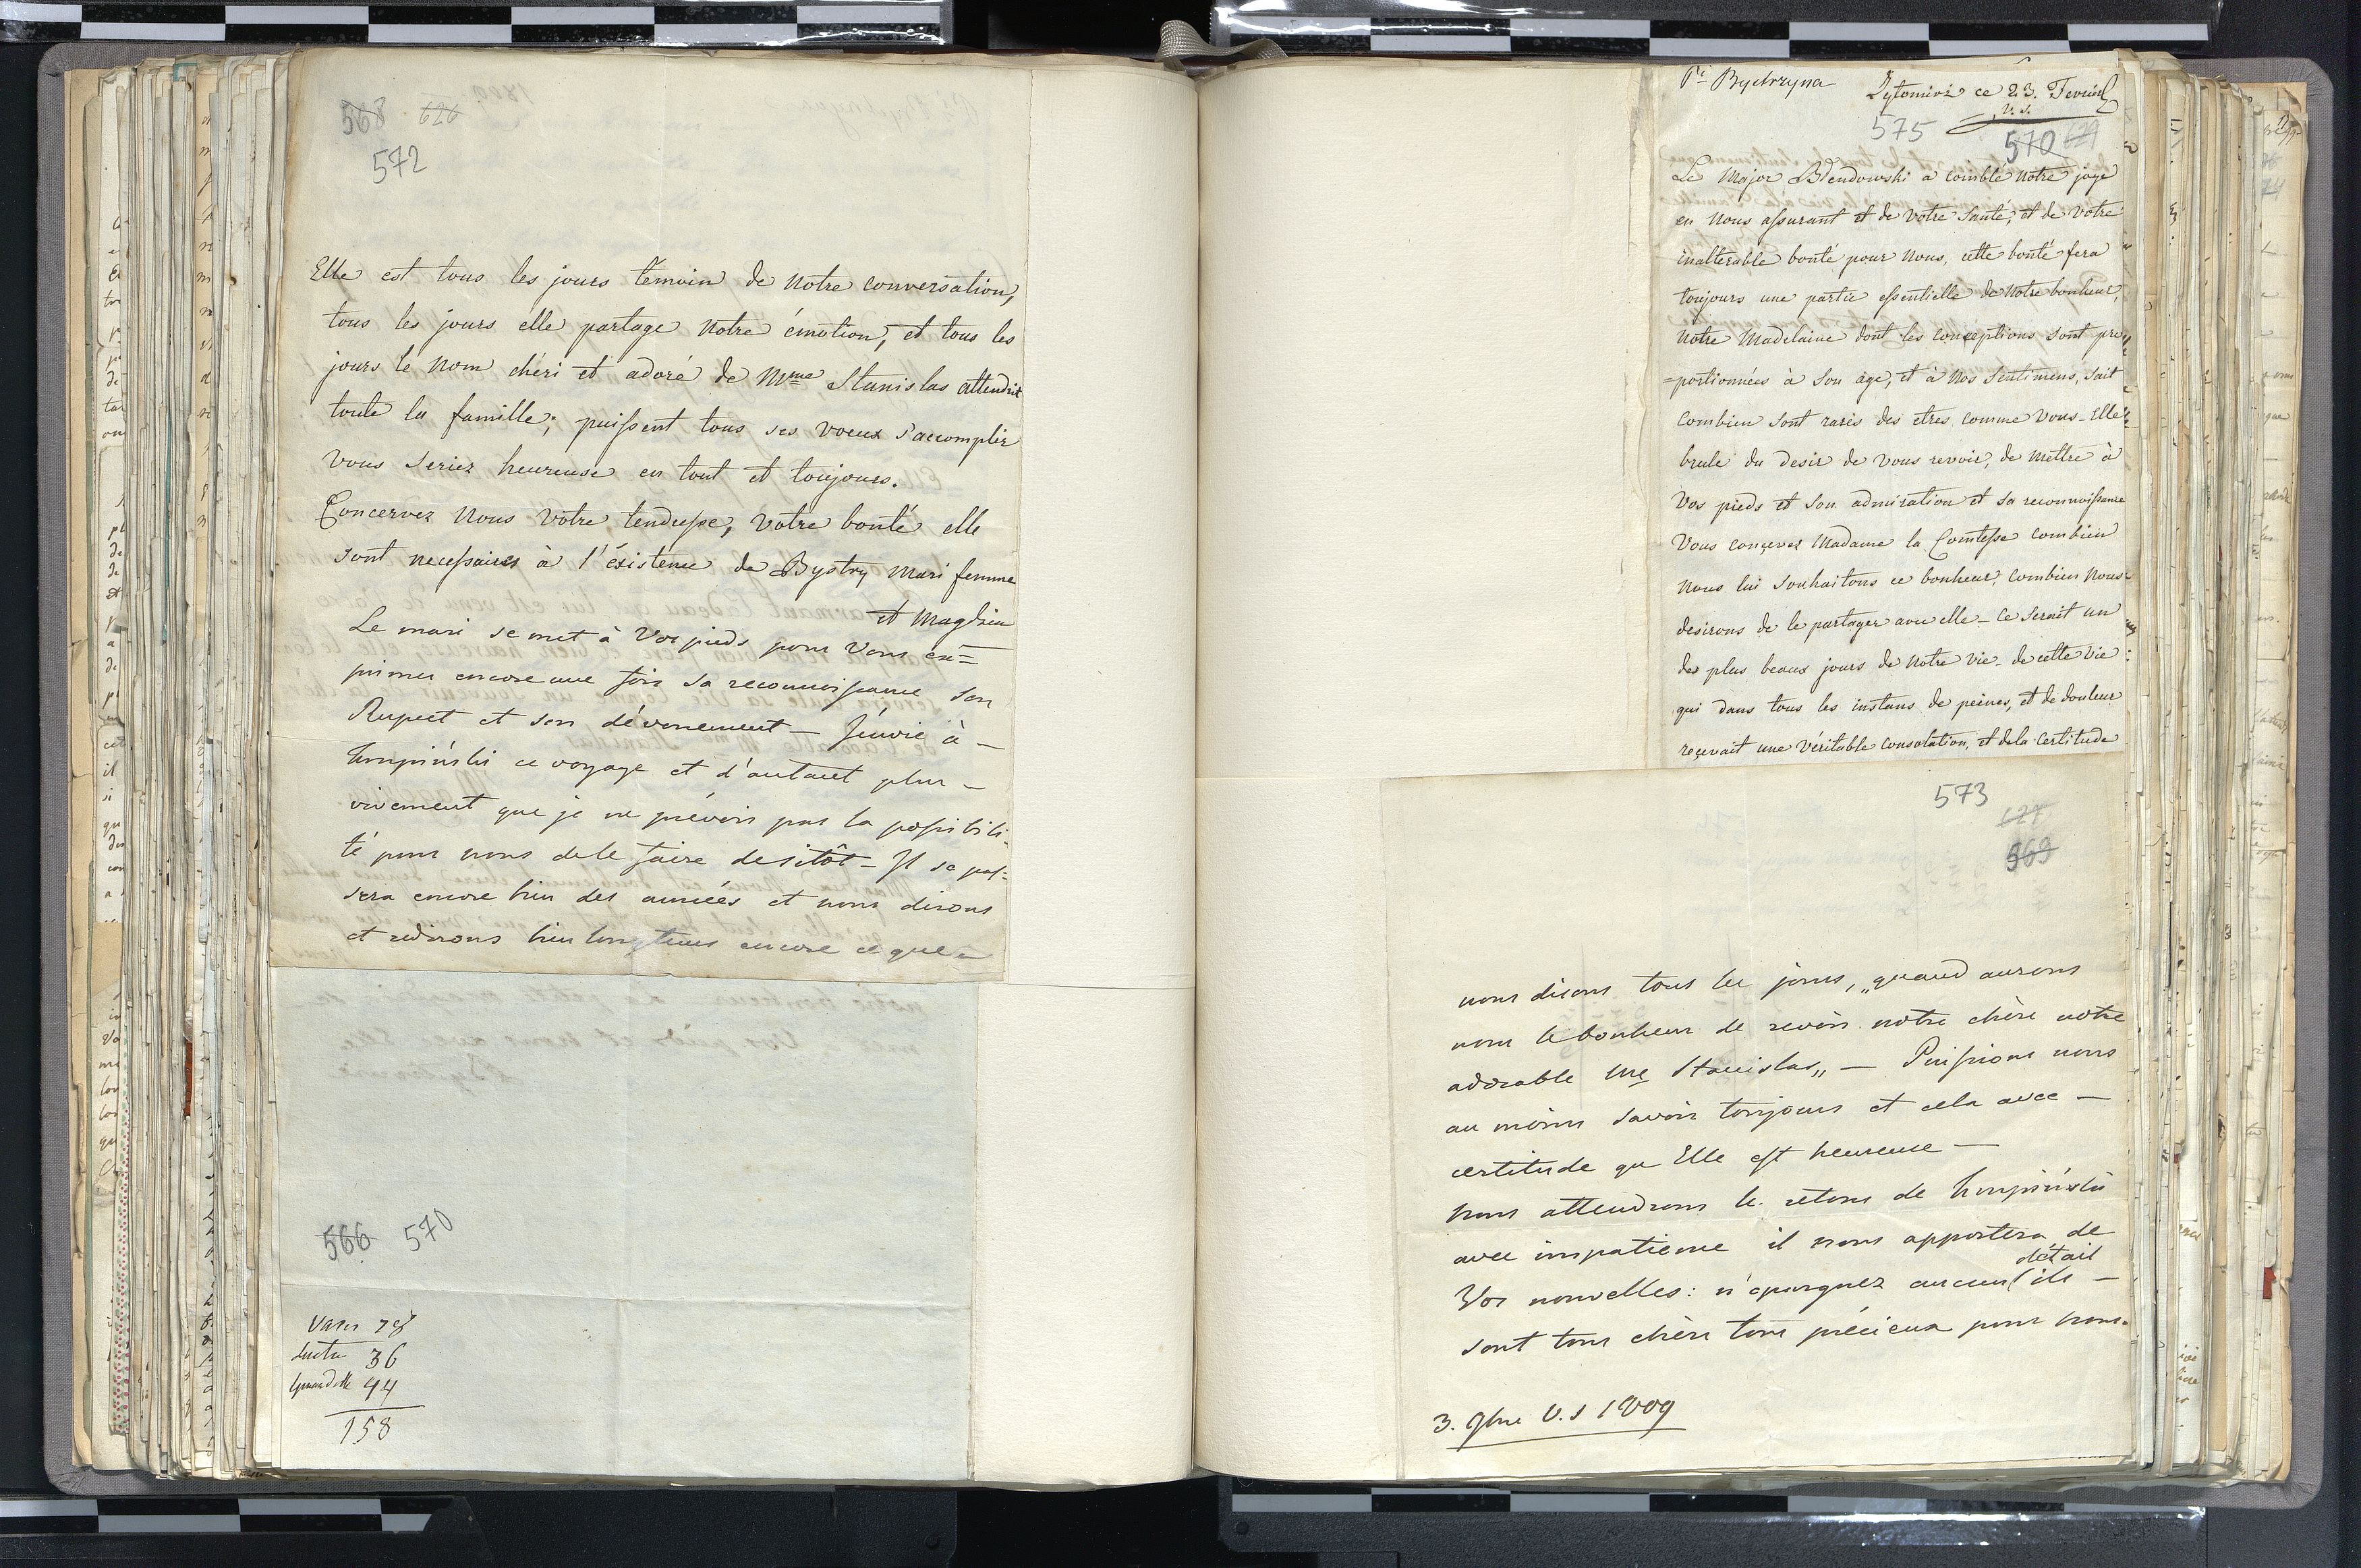 568 626
572
Elle est tous les jours témoin de notre conversation,
tous les jours elle partage notre émotion, et tous les
jours le nom chéri et adoré de Mme Stanislas attendrit
toute la famille; puissent tous ses voeux s'accomplir
vous seriez heureuse en tout et toujours.
Concervez nous votre tendresse, votre bonté elle
sont necessaires à l'éxistence de Bystry mari femme
et Magdzia
Le mari se met à Vos pieds pour Vous ex=
primer encore une fois sa reconnoissance son
Respect et son dévouement — J'envie à —
ce voyage et d'autant plus —
vivement que je ne prévois pas la possibili-
té pour nous de le faire desitôt — Il se pas-
sera encore bien des années et nous disons
et redirons bien longtems encore ce que —
566 570
Vases 78
36
44
158
Bystrzyna
Zytomirz ce 23. Fevrier
v. s.
575
570 629
Le Major Blendowski a comblé notre joye
en nous assurant et de votre santé, et de votre
inaltérable bonté pour nous, cette bonté sera
toujours une partie essentielle de notre bonheur,
notre Madelaine dont les conceptions sont pro
=portionnées à son âge, et à nos sentimens, sait
combien sont rares des etres comme vous - Elle
brule du desir de vous revoir, de mettre à
vos pieds et son admiration et sa reconnoissance
Vous conçevez Madame la Comtesse combien
nous lui souhaitons ce bonheur, combien nous
desirons de le partager avec elle - ce serait un
des plus beaux jours de notre vie - de cette vie
qui dans tous les instans de peines, et de douleur
reçevait une véritable consolation, et de la certitude
573
627
569
nous disons tous les jours, „quand aurons
nous le bonheur de revoir notre chère notre
adorable Me Stanislas„ — Puissions nous
au moins savoir toujours et cela avec —
certitude qu'Elle est heureuse —
Nous attendrons le retour de
avec impatience il nous apportera de
Vos nouvelles: n'épargnez aucun détail ils —
sont tous chers tous précieux pour nous.
3. 9bre V.S 1809